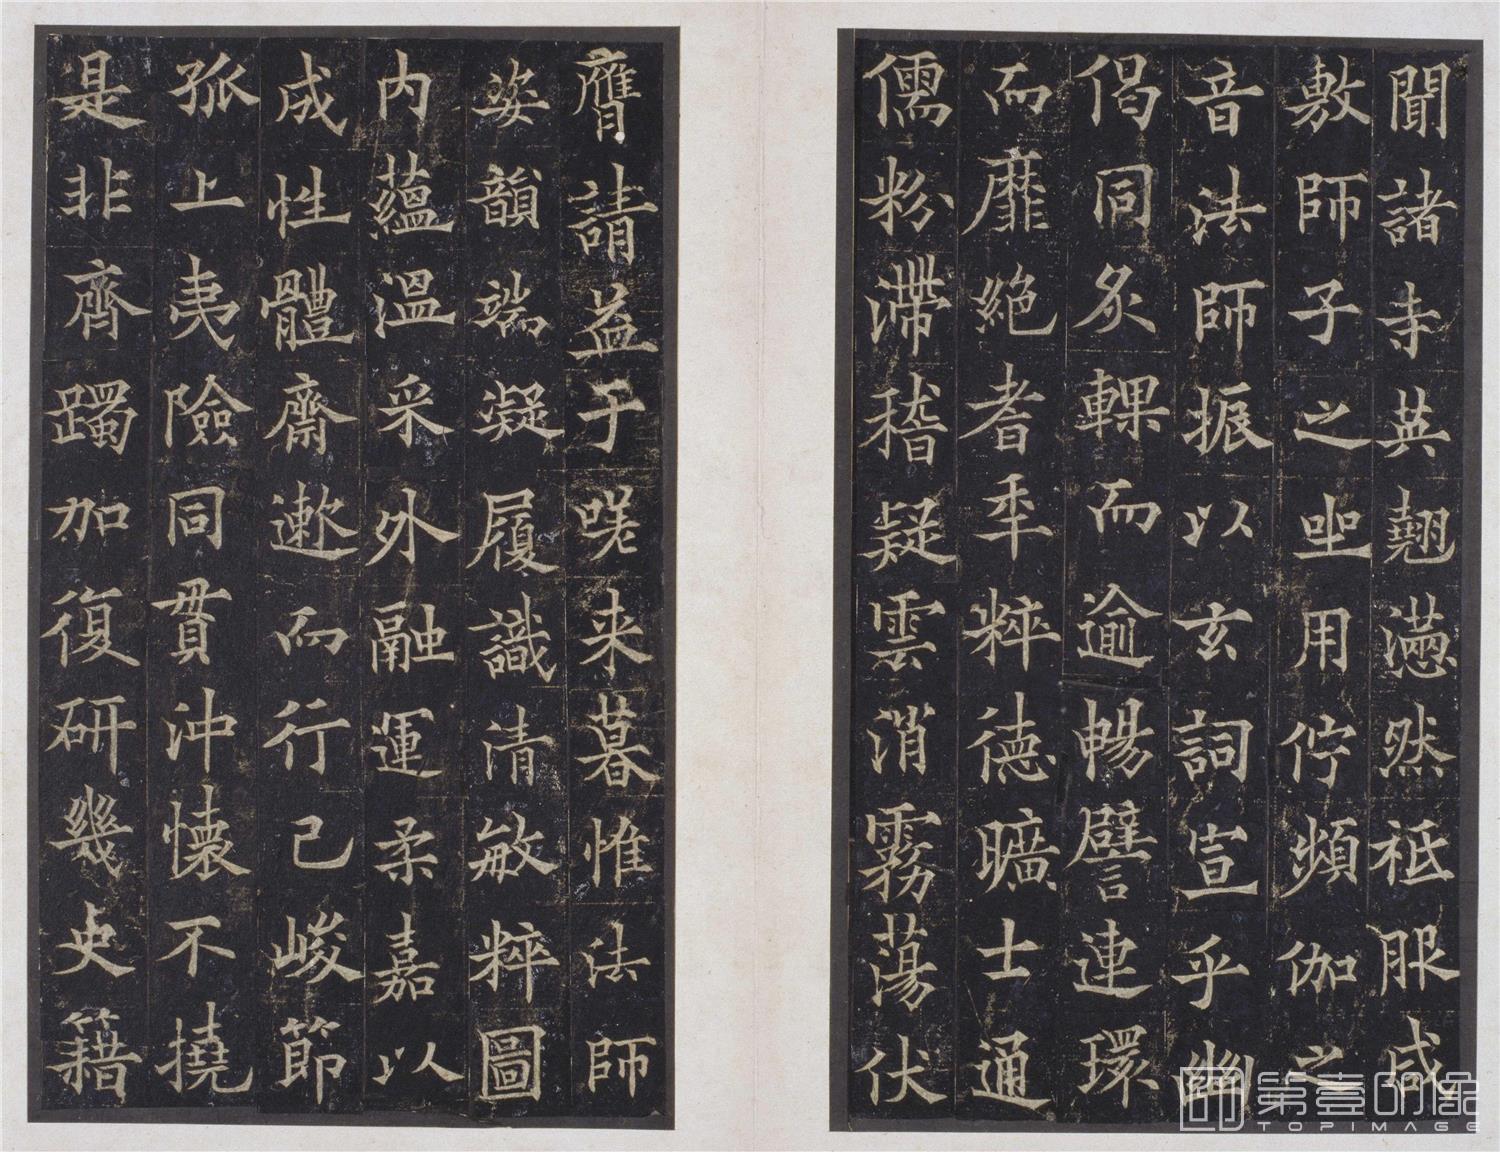 聞諸寺英翹懣然祇服咸
敷師子之唑用佇頻伽之
音法師振以玄詞宣乎幽
偈同炙輠而逾暢譬連環
而靡絕者秊粹德曠士通
儒粉滯稽疑雲消霧蕩伏
膺請益于嗟来暮惟法師
姿韻端凝履識清敏粹圖
内蘊溫采外融運柔嘉以
成性體齋遬而行己峻節
孤上夷險同貫沖懷不撓
是非齊躅加復研幾史籍
第壹印象
TOPIMAGE